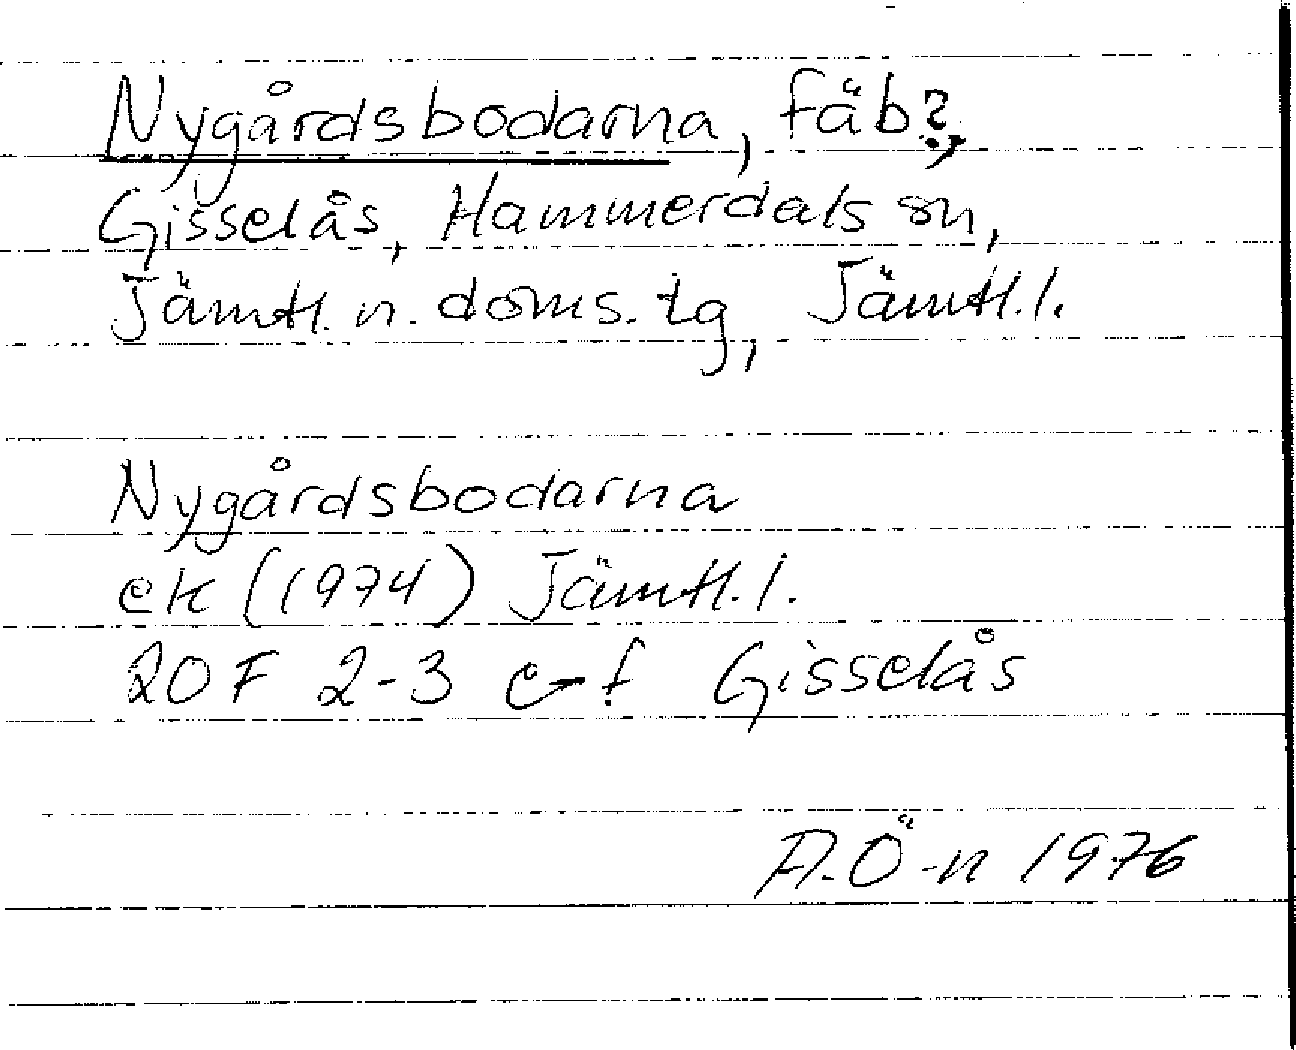 Nygårdsbodarna, fäb?,
Gisselås, Hammerdals sn,
Jämtl. n. doms. tg, Jämtl. l.
Nygårdsbodarna
ek (1974) Jämtl. l.
20F 2-3 e-f Gisselås
A. Ö-n 1976